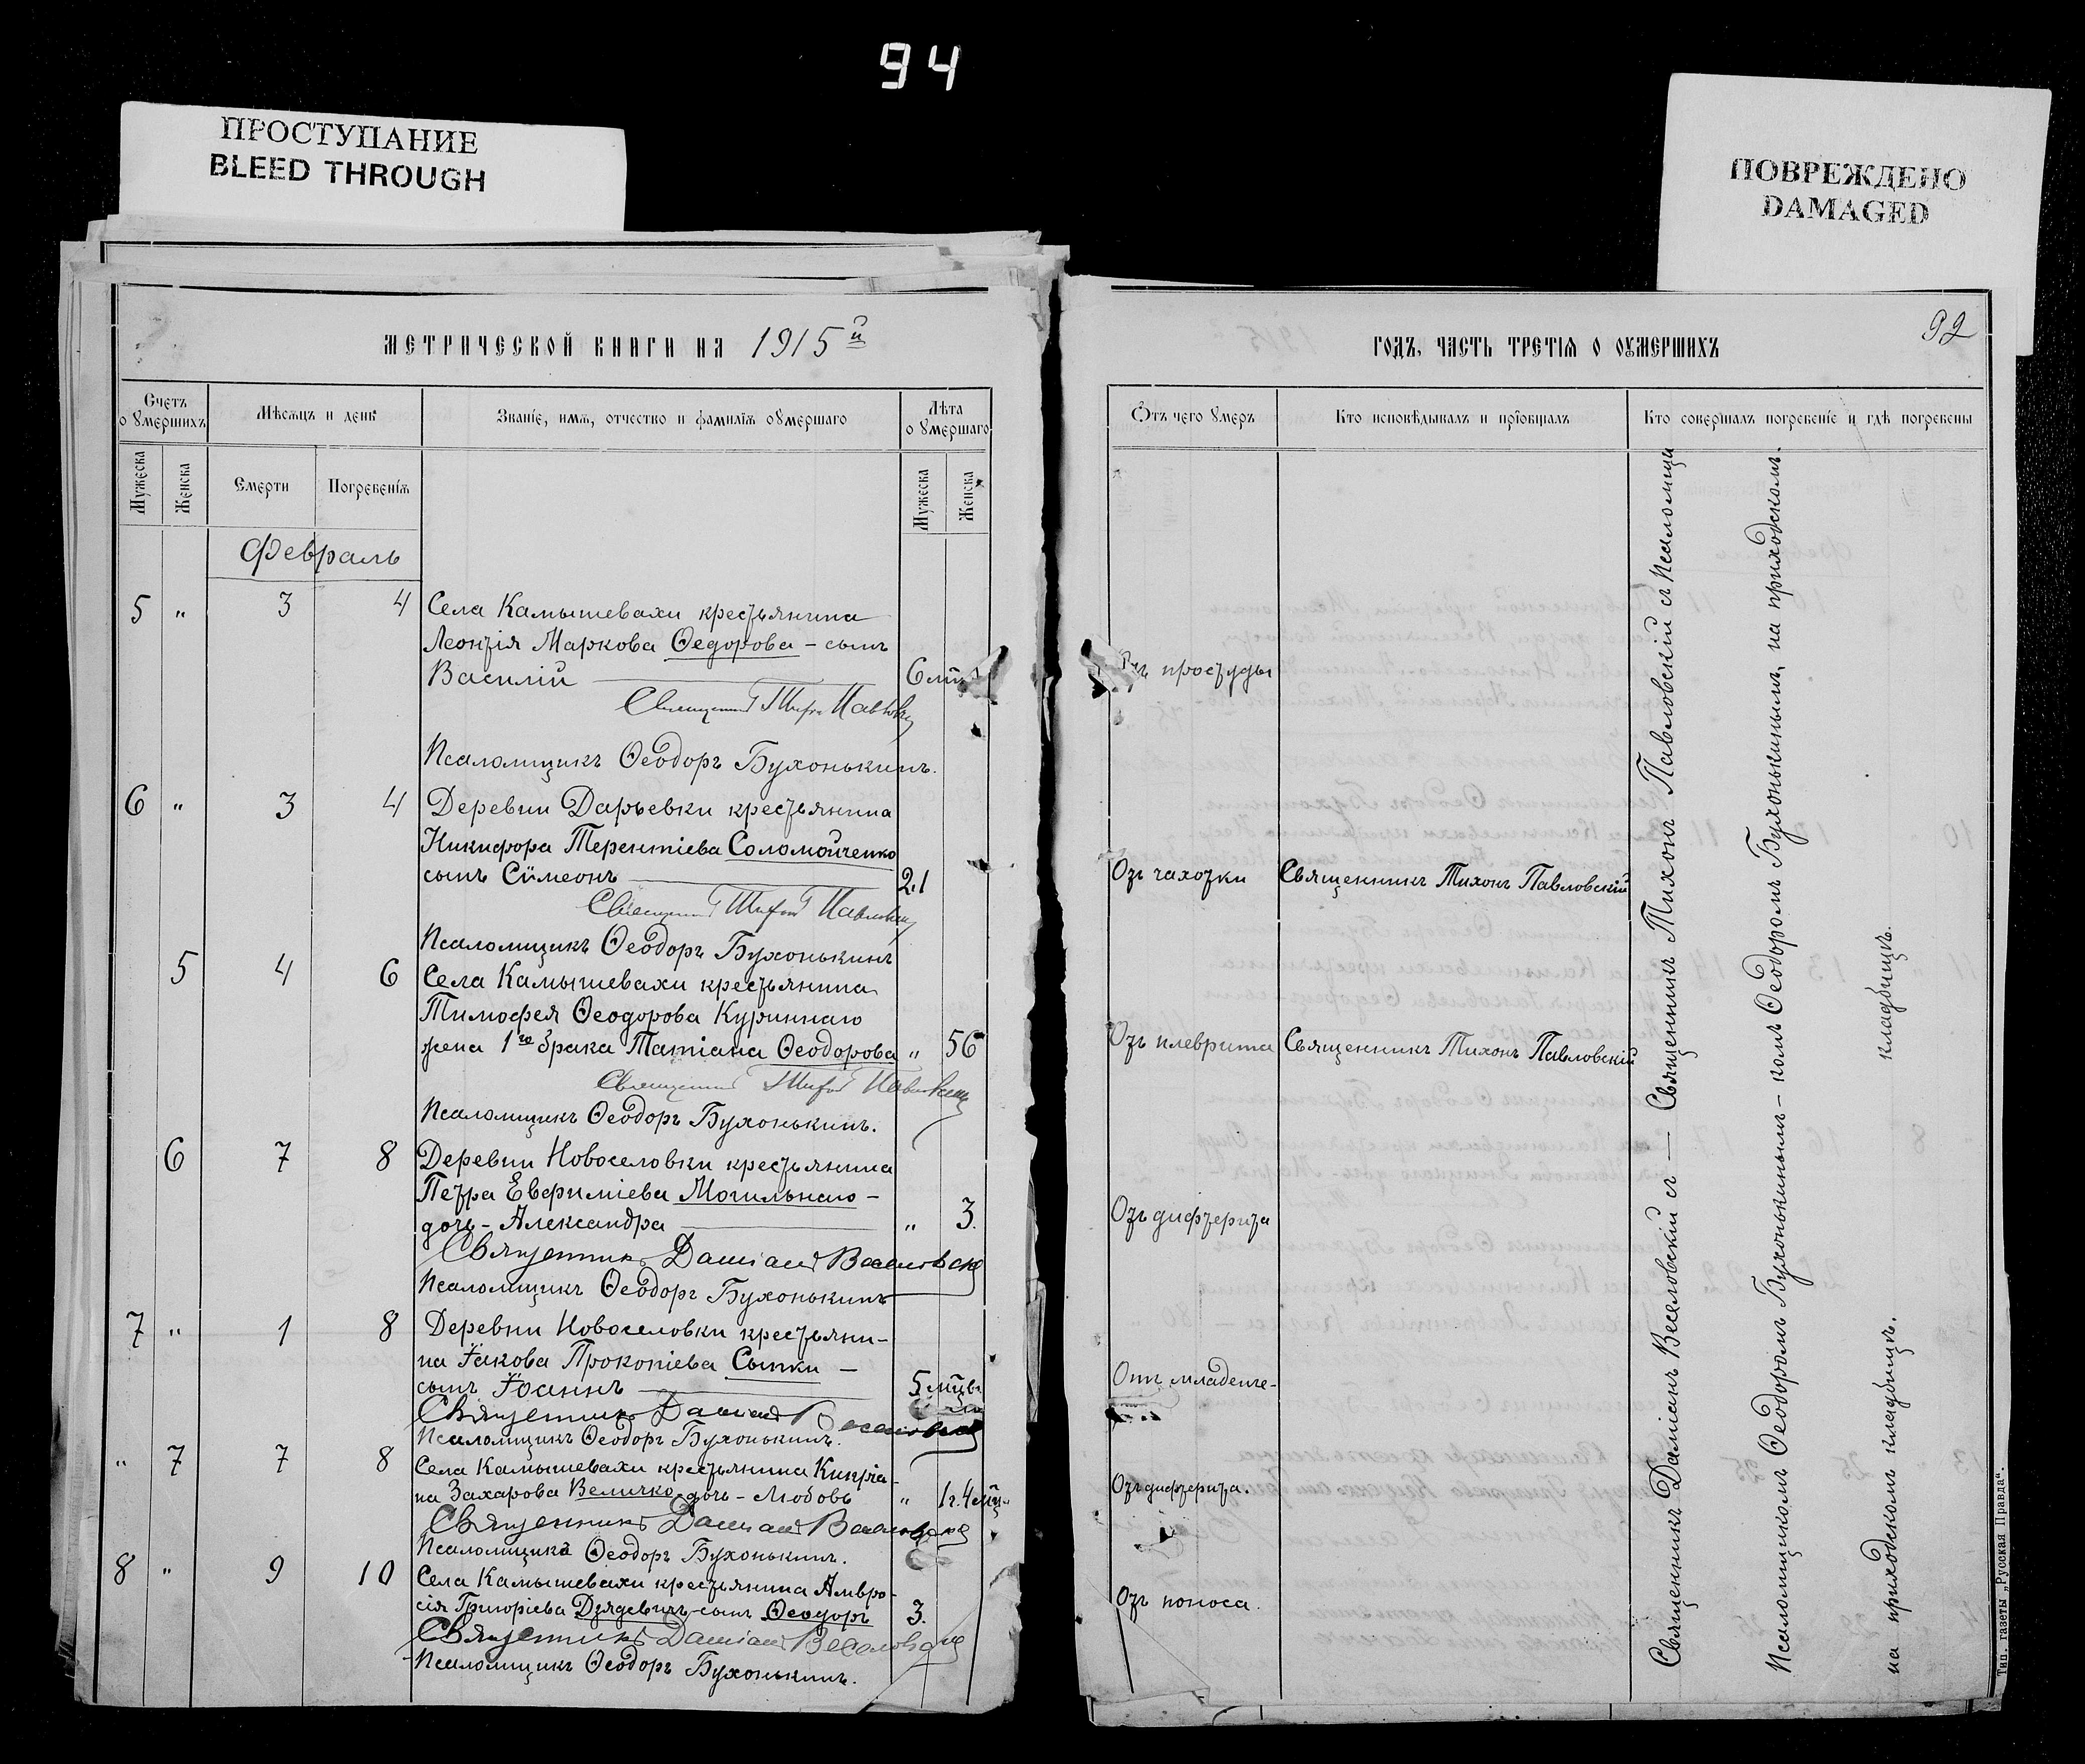 94
ПРОСТУПАНИЕ
BLEED THROUGH
ПОВРЕЖДЕНО
DAMAGED
МЕТРИЧЕСКОЙ КНИГИ НА 1915й
Счетъ о умершихъ
Мѣсяцъ и день
Званіе, имя, отчество и фамилія оумершаго
Лѣта оумершаго
Мужеска
Женска
Смерти
Погребенія
Мужеска
Женска
Февраль
5 " 3 4 Села Камышевахи крестьянина
Леонтія Маркова Ѳедорова – сынъ
Василій 6 м
Священникъ Тихонъ Павловскій
Псаломщикъ Ѳеодоръ Бухонькинъ.
6 " 3 4 Деревни Дарьевки крестьянина
Никифора Терентіева Соломойченко
сынъ Сѵмеонъ 21
Священникъ Тихонъ Павловскій
Псаломщикъ Ѳеодоръ Бухонькинъ
5 4 6 Села Камышевахи крестьянина
Тимоѳея Ѳеодорова Куриннаго
жена 1го брака Татіана Ѳеодорова " 56
Священникъ Тихонъ Павловскій
Псаломщикъ Ѳеодоръ Бухонькинъ.
6 7 8 Деревни Новоселовки крестьянина
Петра Евфиміева Могильнаго –
дочь – Александра " 3.
Священникъ Даміанъ Веселовскій
Псаломщикъ Ѳеодоръ Бухонькинъ
7 " 1 8 Деревни Новоселовки крестьяни-
на Іакова Прокопіева Сытки –
сынъ Іоаннъ 5 мцвъ
Священникъ Даміанъ Веселовскій
Псаломщикъ Ѳеодоръ Бухонькинъ.
" 7 7 8 Села Камышевахи крестьянина Кипріа-
на Захарова Величко – дочь – Любовь " 1 г. 4 мц
Священникъ Даміанъ Веселовскій
Псаломщикъ Ѳеодоръ Бухонькинъ.
8 " 9 10 Села Камышевахи крестьянина Амвро-
сія Григоріева Дзядевичъ – сынъ Ѳеодоръ 3.
Священникъ Даміанъ Веселовскій
Псаломщикъ Ѳеодоръ Бухонькинъ.
92
ГОДЪ, ЧАСТЬ ТРЕТІЯ О ОУМЕРШИХЪ
Отъ чего умеръ
Кто исповѣдывалъ и пріобщалъ
Кто совершалъ погребеніе и гдѣ погребены
Отъ простуды
Отъ чахотки Священникъ Тихонъ Павловскій
Отъ плеврита Священникъ Тихонъ Павловскій
Отъ дифтерита
Отъ младенче-
Отъ дифтерита.
Отъ поноса.
Священникъ Даміанъ Веселовскій съ — Священникъ Тихонъ Павловскій съ Псаломщи
Псаломщикомъ Ѳеодоромъ Бухонькинымъ – комъ Ѳеодоромъ Бухонькинымъ, на приходскомъ.
на приходскомъ кладбищѣ. кладбищѣ.
Тип. газеты „Русская Правда".